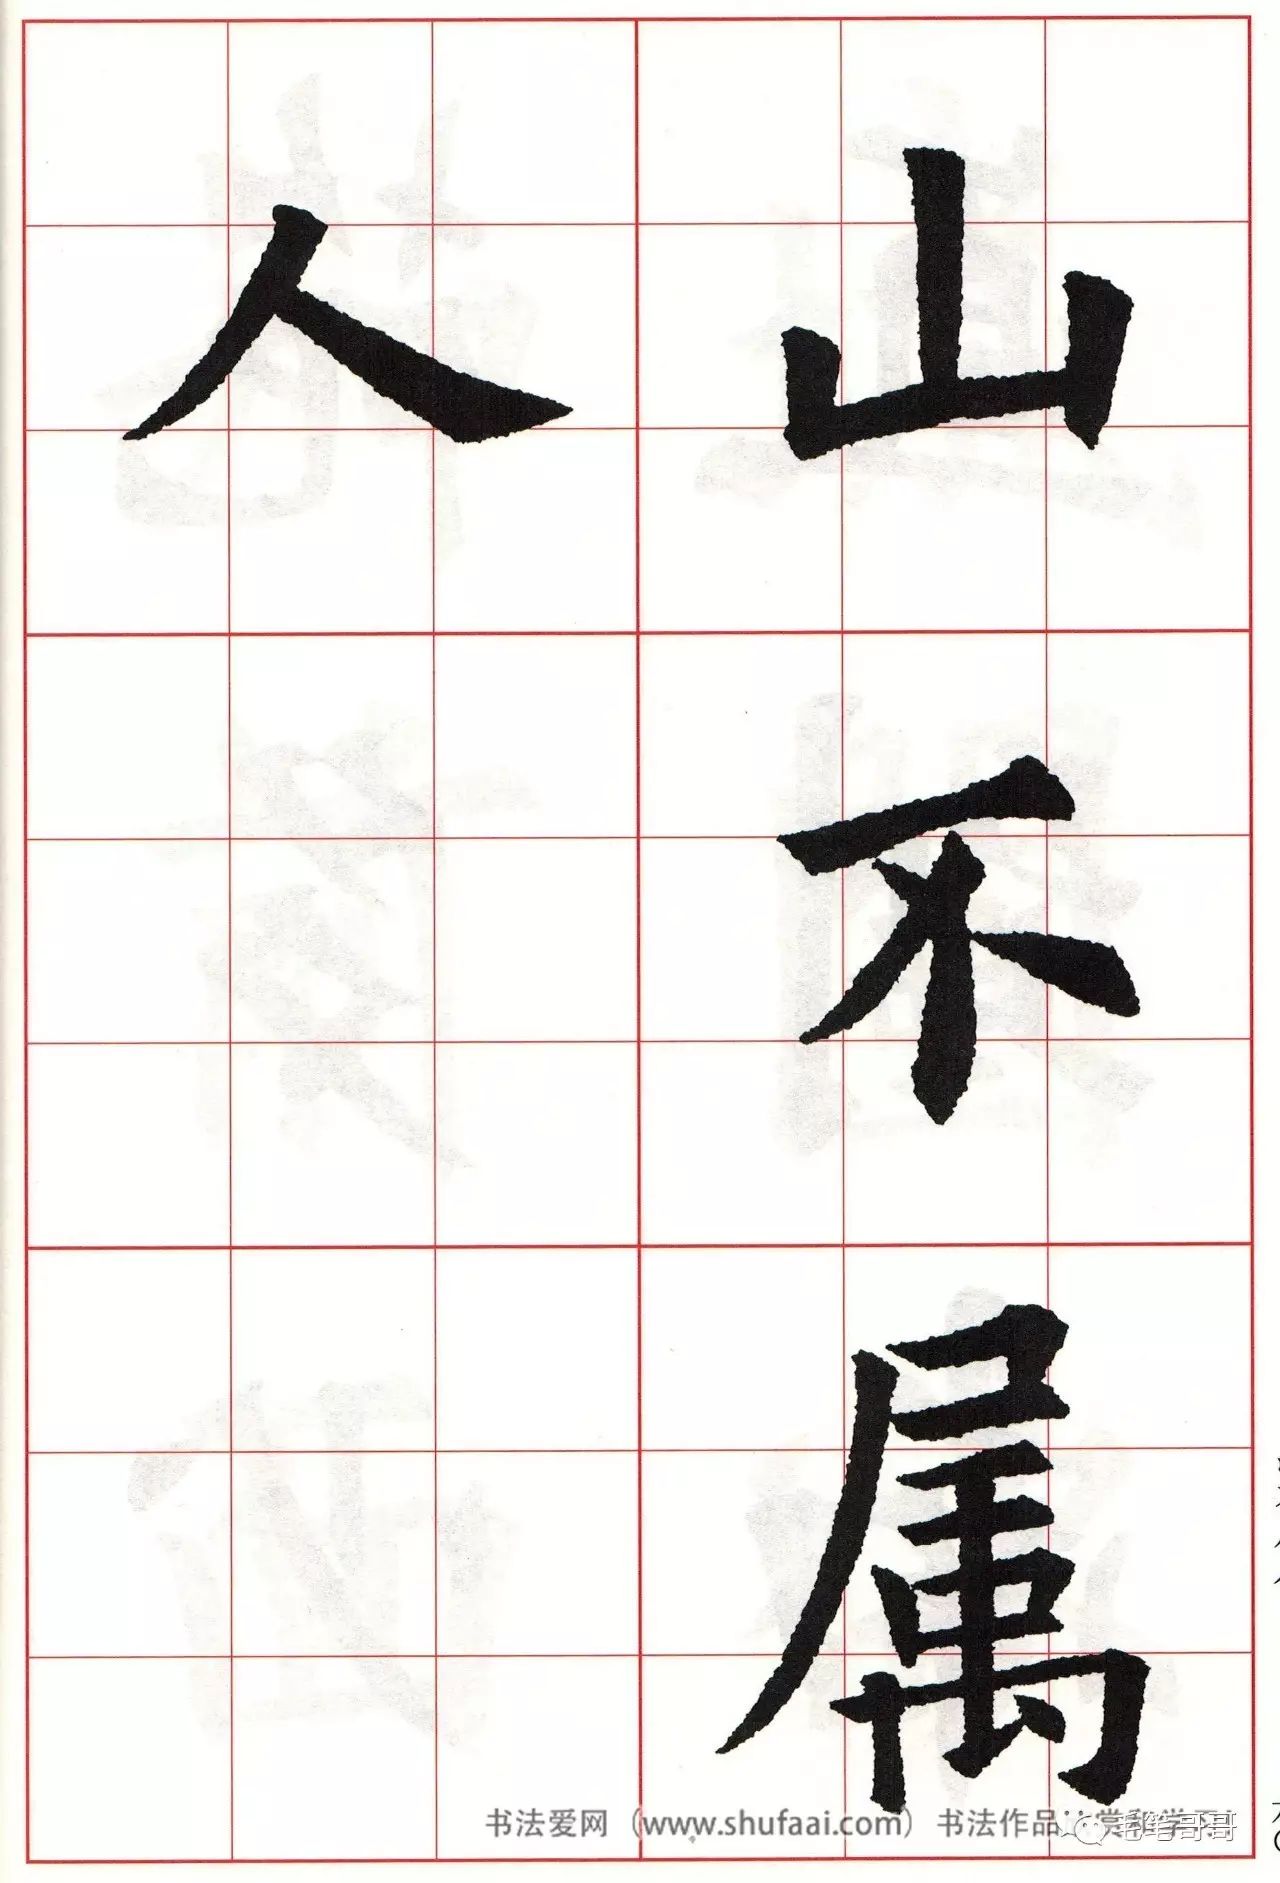 山不属
人
书法爱网（www.shufaai.com）书法作品
毛笔哥哥